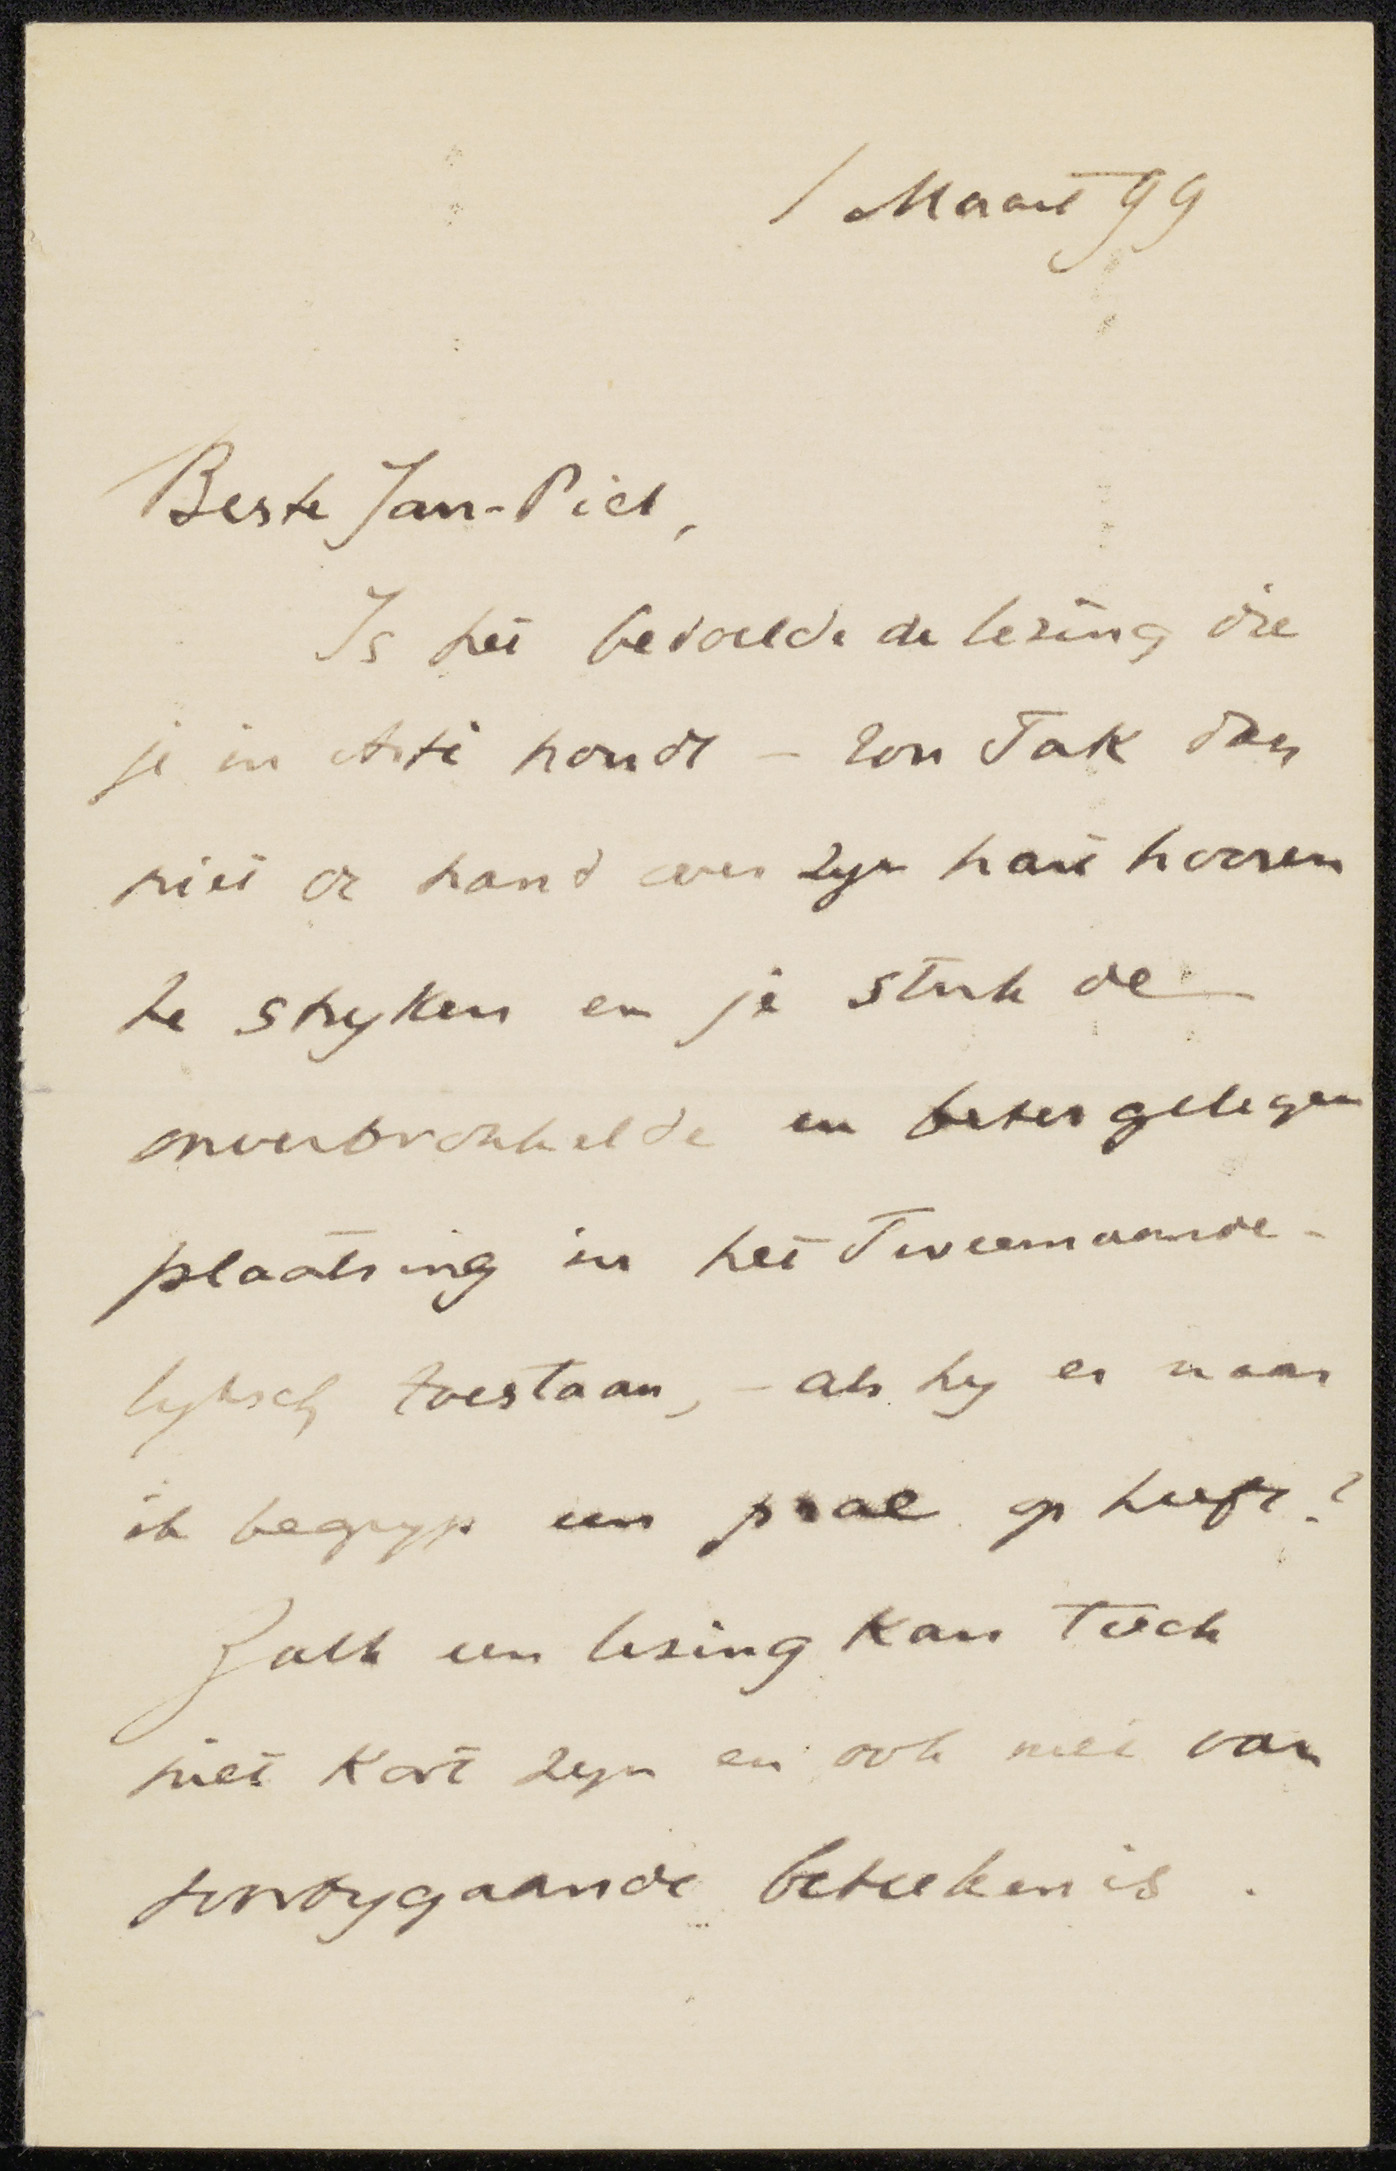 1 Maart 99
Beste Jan-Piet,
Is het bedoelde de lezing die
je in Arti houdt – zou Tak dan
niet de hand over zyn hart hooren
te stryken en je stuk de
onverbrokkelde en beter gelegen
plaatsing in het Tweemaande-
lyksch toestaan, – als hy er naar
ik begryp een prae op heeft?
Zulk een lezing kan toch
niet kort zyn en ook niet van
voorbygaande beteekenis.